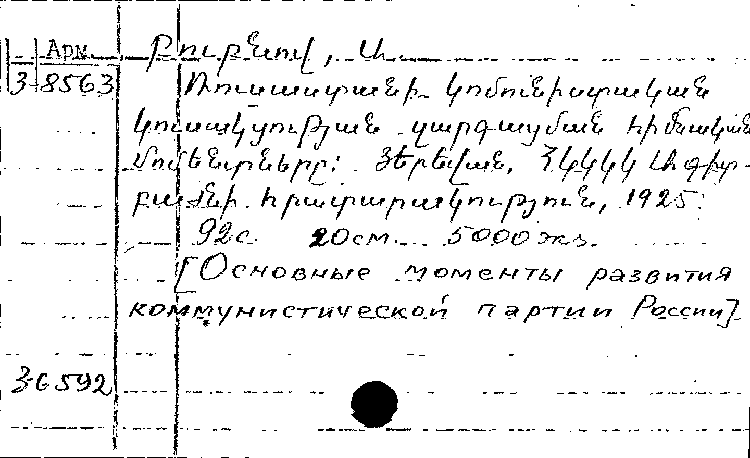 Арм. Բուբնով, Ա.
3-8563 Ռուսաստանի կոմունիստական
կուսակցության զարգացման հիմնական
մոմենտները: Յերևան, ՀԿԿԿ Ագիտ-
բաժնի հրատարակություն, 1925.
92с. 20см. 5000 экз.
[Основные моменты развития
коммунистической партии России]
36592